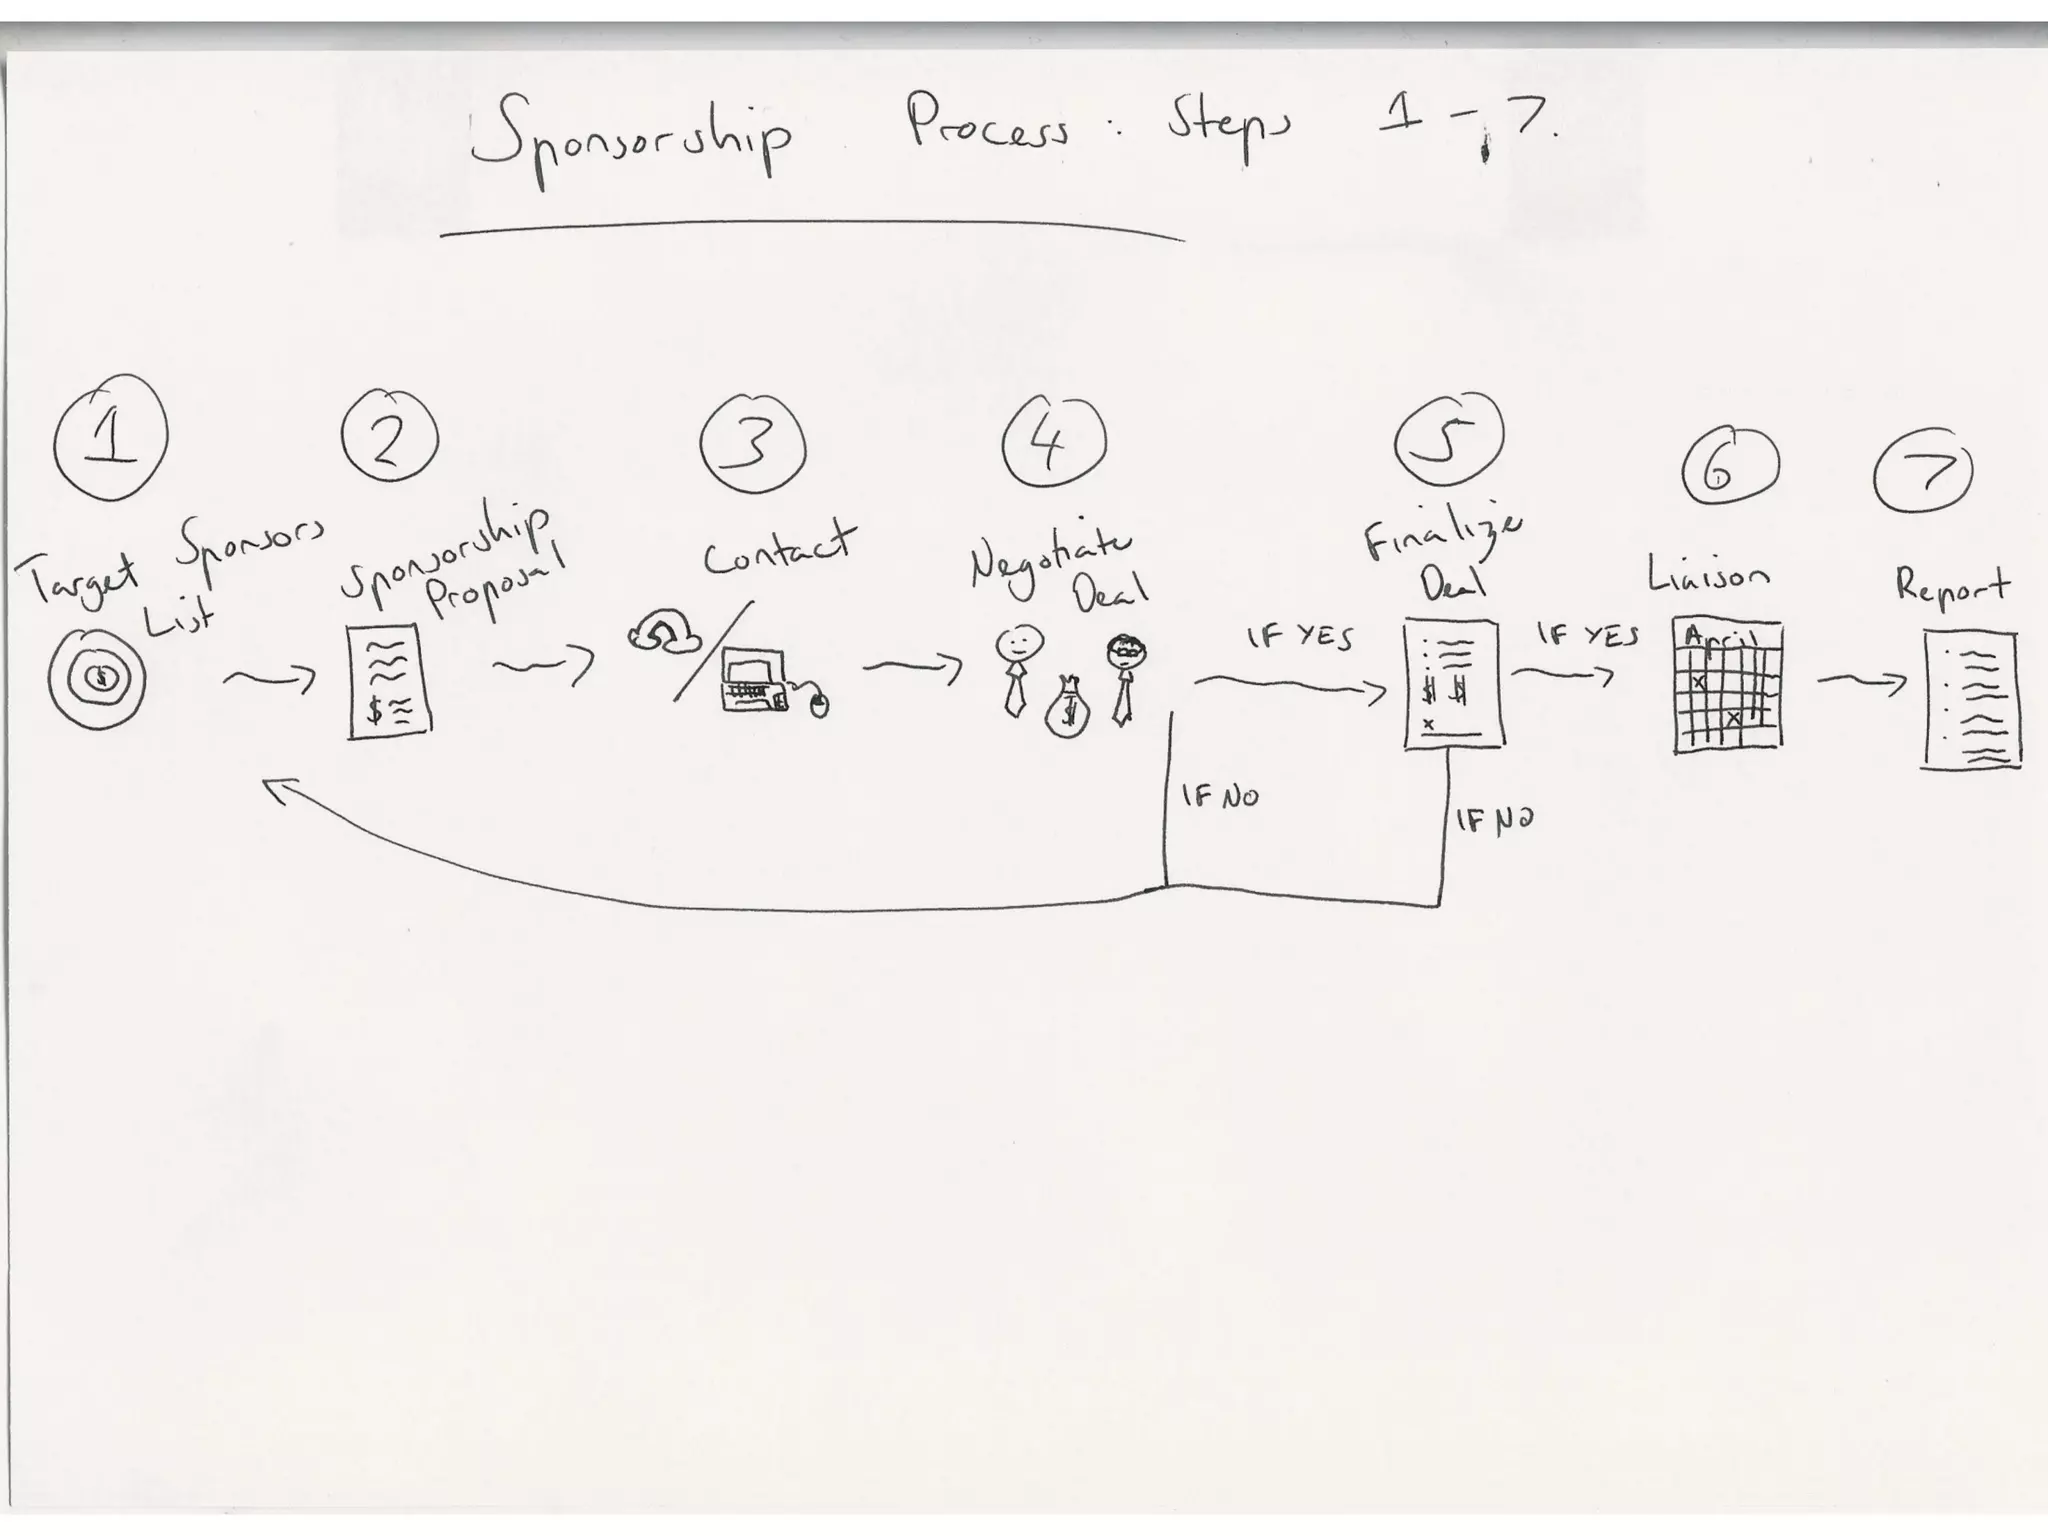 Sponsorship Process: Steps 1-7.
1
Target Sponsors
List
$
2
Sponsorship
Proposal
$
3
Contact
4
Negotiate
Deal
$
IF YES
IF NO
5
Finalize
Deal
$ $
x
IF YES
IF NO
6
Liaison
April
x
x
7
Report